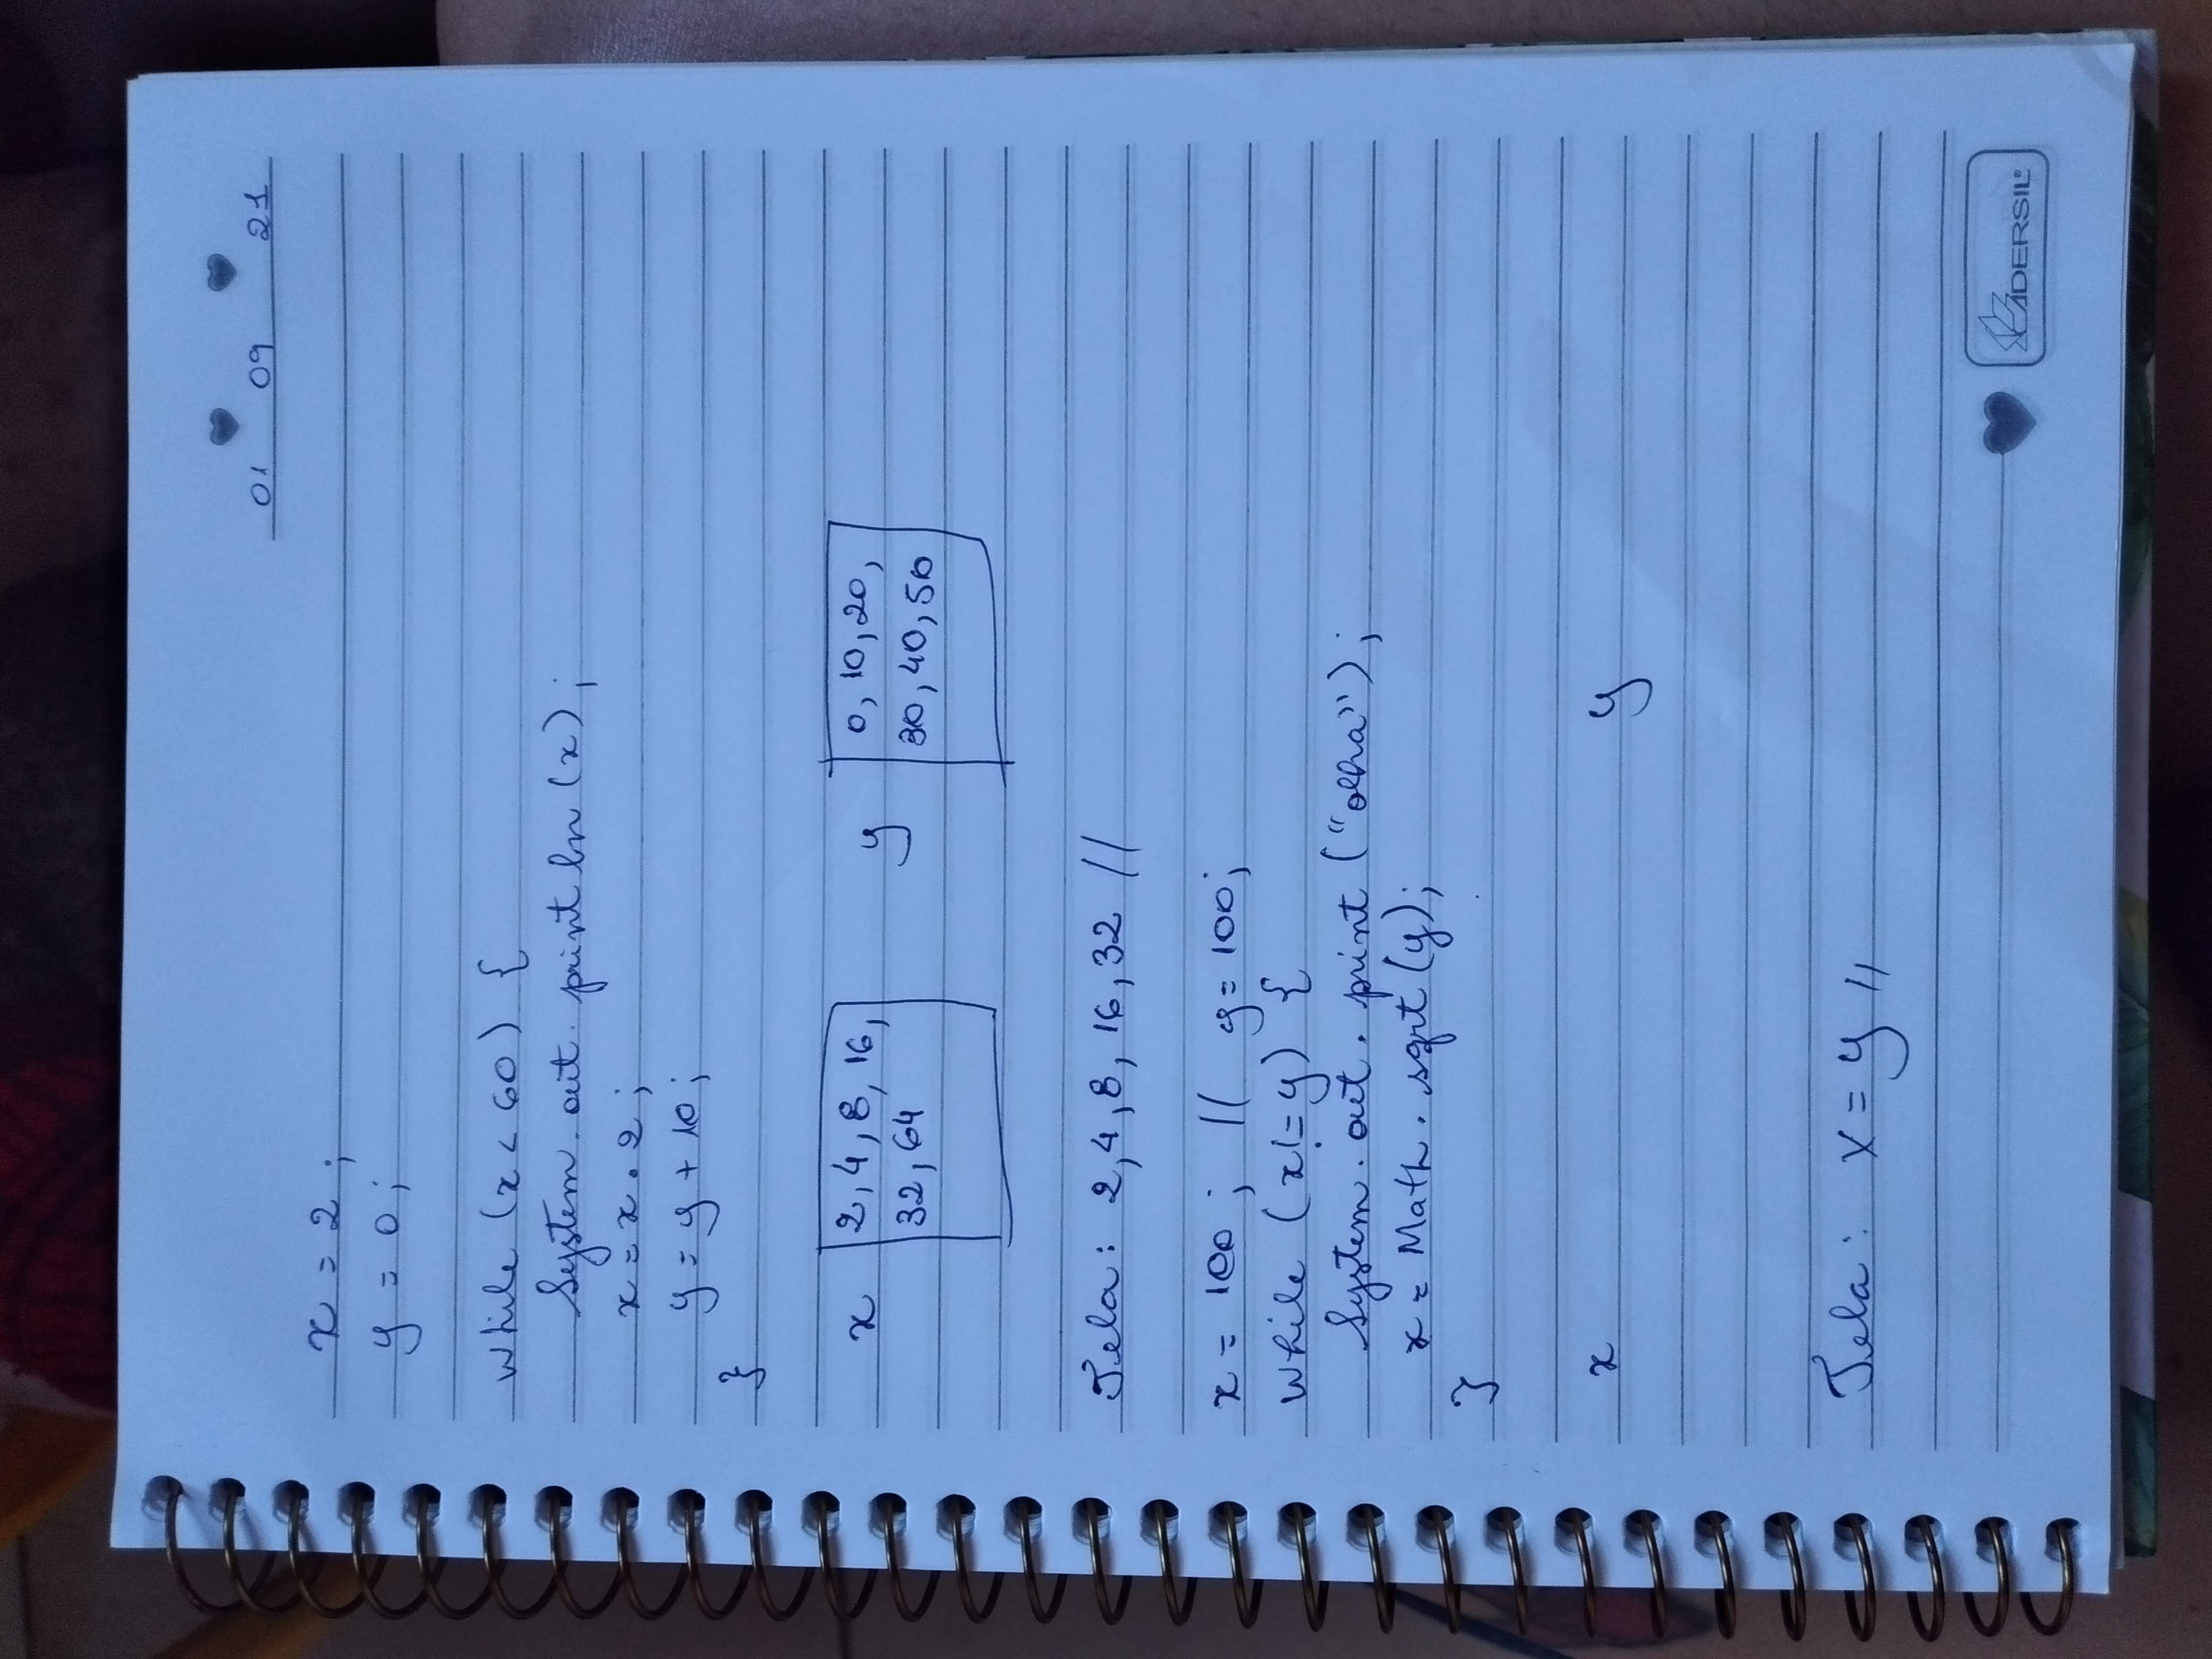 01 09 21
x = 2 ;
y = 0 ;
while (x < 60) {
System . out . print ln (x) ;
x = x . 2 ;
y = y + 10 ;
}
x 2, 4, 8, 16, y 0, 10, 20,
32, 64 30, 40, 50
Tela : 2, 4, 8, 16, 32 //
x = 100 ; // y = 100 ;
while (x != y) {
System . out . print ("olha") ;
x = Math . sqrt (y) ;
}
x y
Tela : x = y //
ADERSIL®